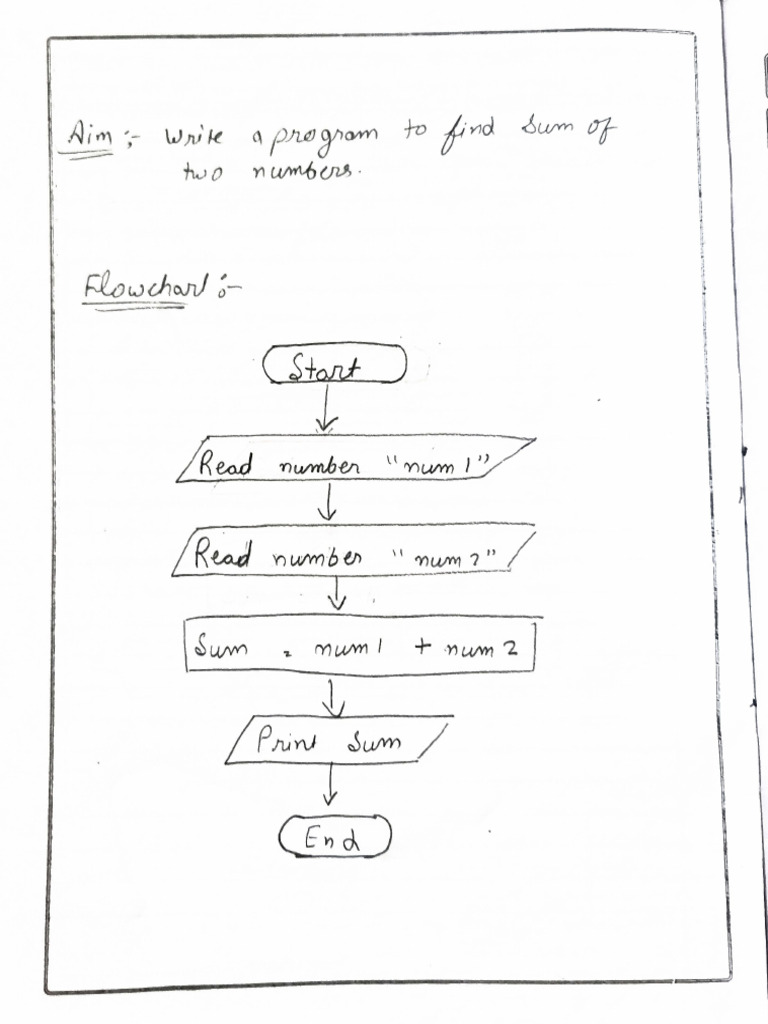 Aim :- Write a program to find Sum of
two numbers.
Flowchart :-
Start
Read number "num 1"
Read number "num 2"
Sum = num1 + num 2
Print Sum
End